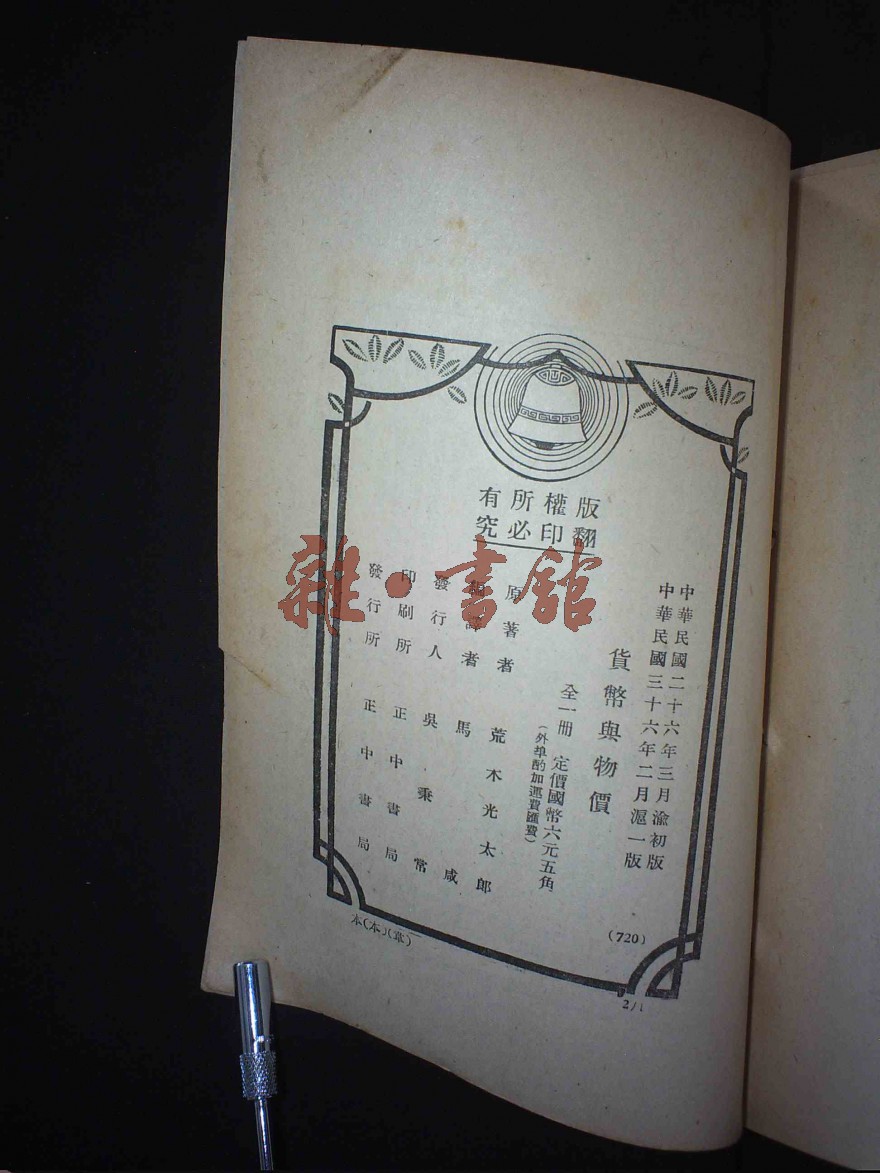 版權所有
翻印必究
中華民國二十六年三月渝初版
中華民國三十六年二月滬一版
貨幣與物價
全一冊 定價國幣六元五角
(外埠酌加運費匯費)
原著者 荒木光太郎
編譯者 馬咸
發行人 吳秉常
印刷所 正中書局
發行所 正中書局
(720)
本(本)(章)
2/1
雜·書館